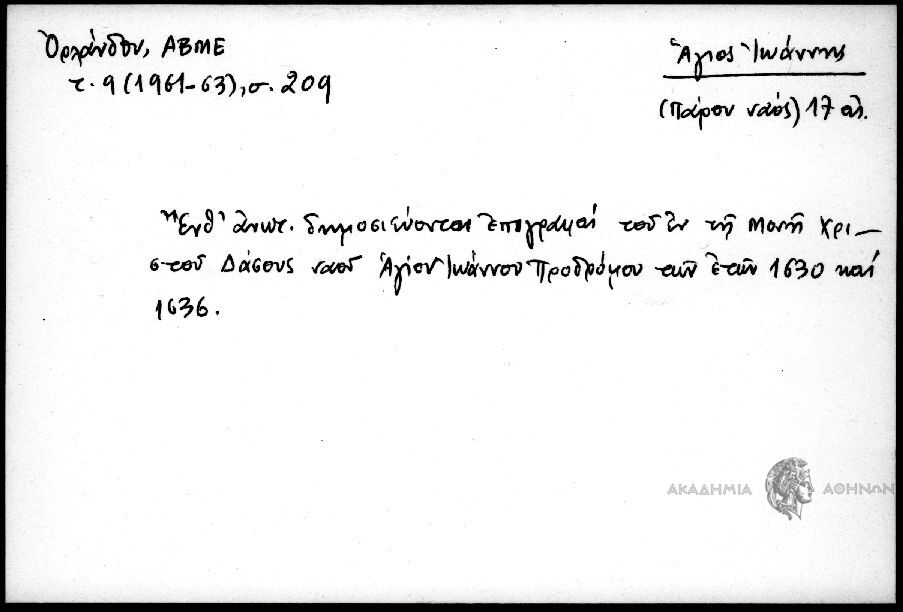 Ὀρλάνδου, ΑΒΜΕ
τ. 9 (1961-63), σ. 209
Ἅγιος Ἰωάννης
(Πάρου ναός) 17 αἰ.
Ἔνθ' ἀνωτ. δημοσιεύονται ἐπιγραφαί τοῦ ἐν τῇ Μονῇ Χρι-
στοῦ Δάσους ναοῦ Ἁγίου Ἰωάννου Προδρόμου τῶν ἐτῶν 1630 καί
1636.
ΑΚΑΔΗΜΙΑ ΑΘΗΝΩΝ